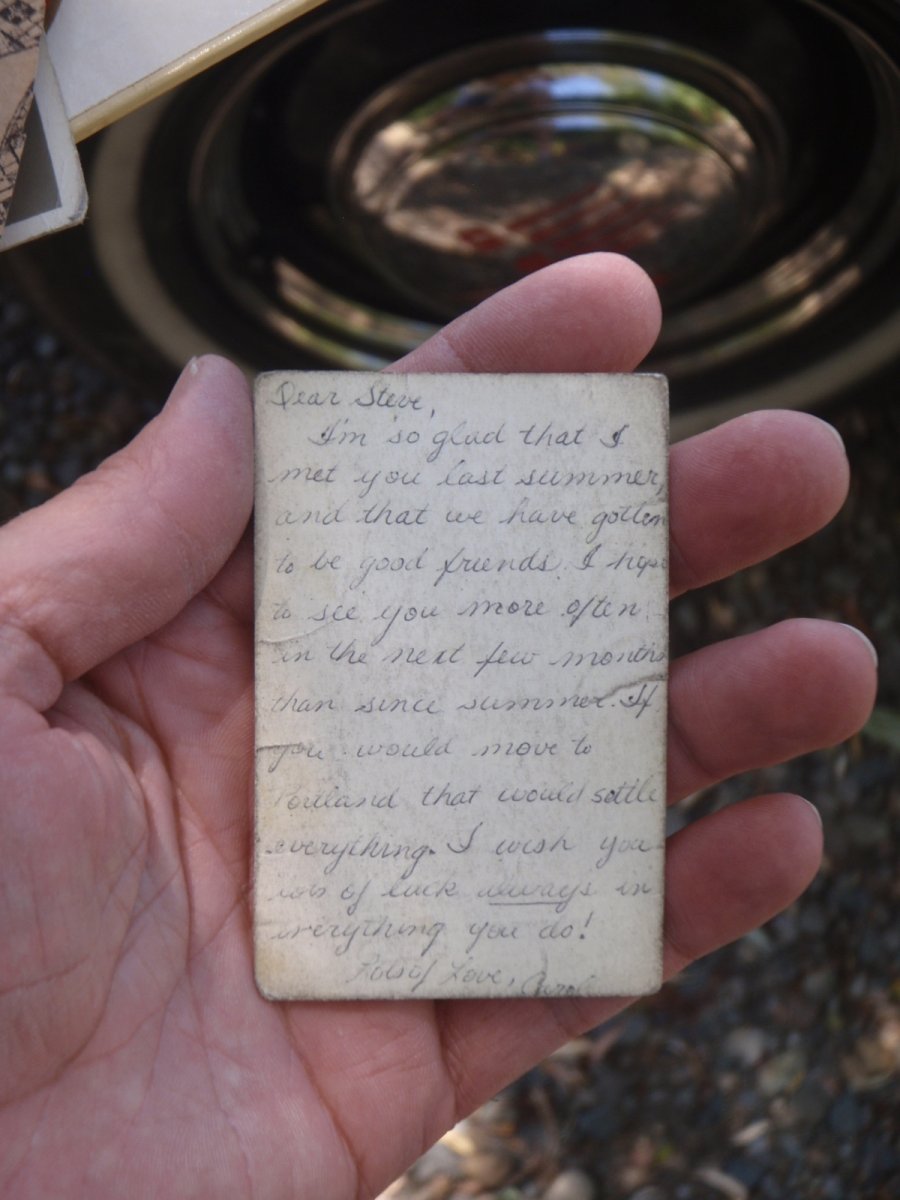 Dear Steve,
I'm so glad that I
met you last summer,
and that we have gotten
to be good friends. I hope
to see you more often
in the next few months
than since summer. If
you would move to
Portland that would settle
everything. I wish you
lots of luck always in
everything you do!
Lots of Love, Carol